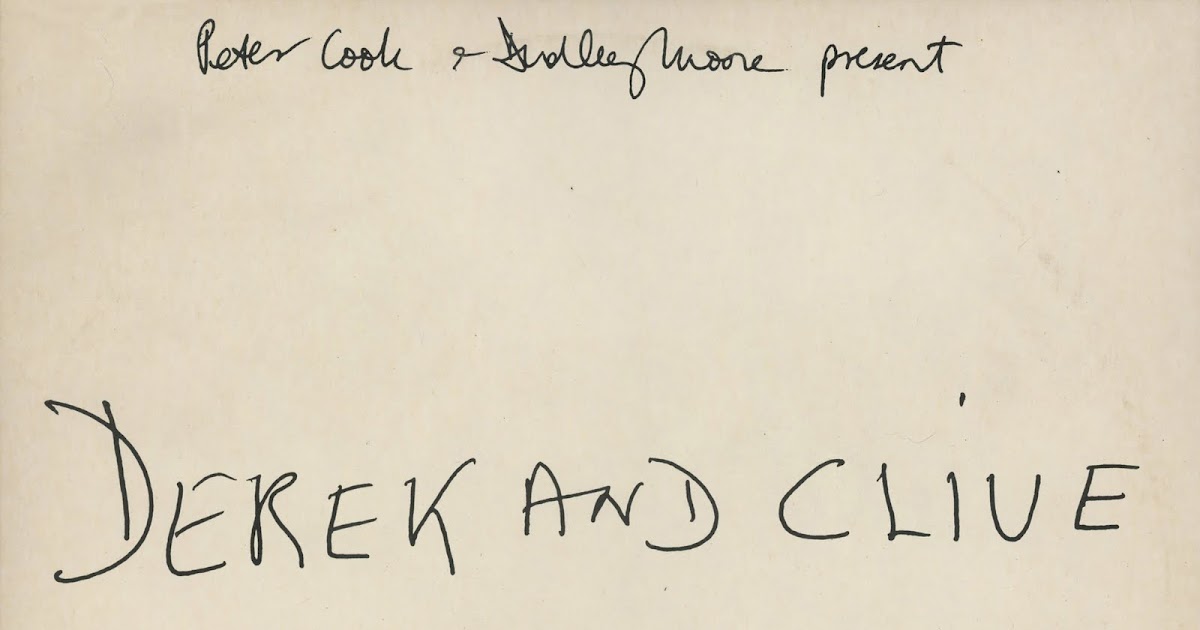 Peter Cook & Dudley Moore present
DEREK AND CLiVE